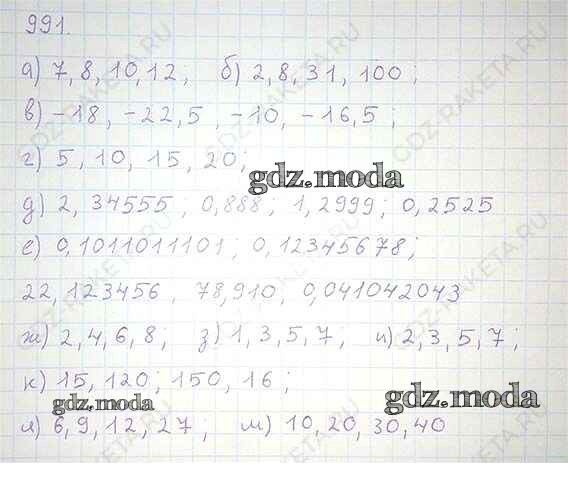 991.
а) 7, 8, 10, 12; б) 2, 8, 31, 100;
в) -18, -22,5, -10, -16,5;
г) 5, 10, 15, 20;
gdz.moda
д) 2, 34555; 0,888; 1,2999; 0,2525
е) 0,1011011101; 0,12345678;
22,123456, 78,910, 0,041042043
ж) 2, 4, 6, 8; з) 1, 3, 5, 7; и) 2, 3, 5, 7;
к) 15, 120; 150, 16;
gdz.moda
gdz.moda
л) 6, 9, 12, 27; м) 10, 20, 30, 40
GDZ-RAKETA.RU